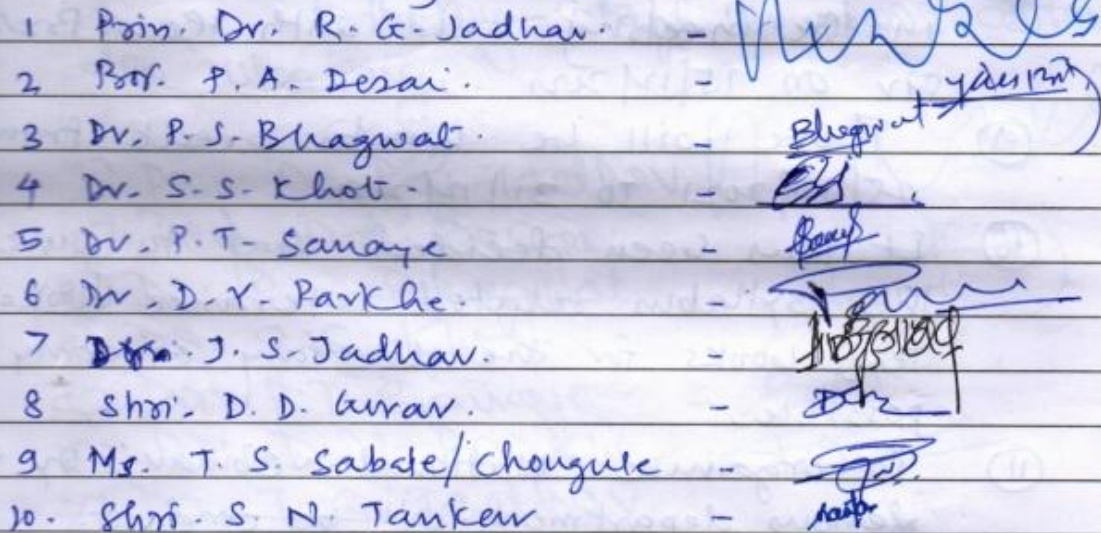 1 Prin. Dr. R. G. Jadhav. -
2 Prof. P. A. Desai. -
3 Dr. P. S. Bhagwat. - Bhagwat
4 Dr. S. S. Khot. -
5 Dr. P. T. Sanaye -
6 Dr. D. Y. Parkhe. -
7 J. S. Jadhav. -
8 Shri. D. D. Gurav. -
9 Ms. T. S. Sabde/Chougule -
10. Shri. S. N. Tankev -